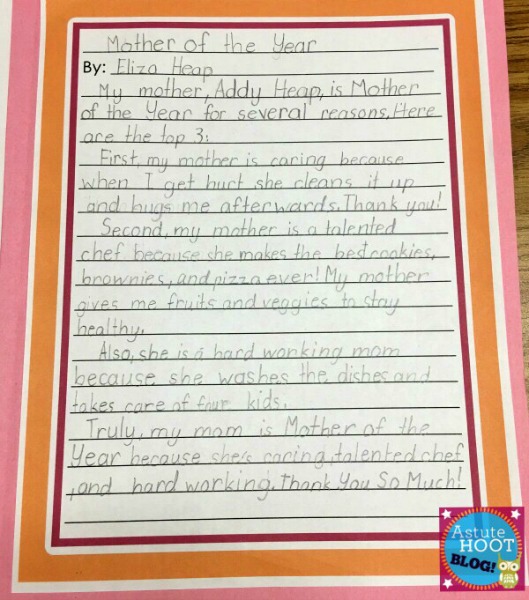 Mother of the Year
By: Eliza Heap
My mother, Addy Heap, is Mother
of the Year for several reasons. Here
are the top 3:
First, my mother is caring because
when I get hurt she cleans it up
and hugs me afterwards. Thank you!
Second, my mother is a talented
chef because she makes the best cookies,
brownies, and pizza ever! My mother
gives me fruits and veggies to stay
healthy.
Also, she is a hard working mom
because she washes the dishes and
takes care of four kids.
Truly, my mom is Mother of the
Year because she's caring, talented chef
, and hard working. Thank You So Much!
Astute
HOOT
BLOG!